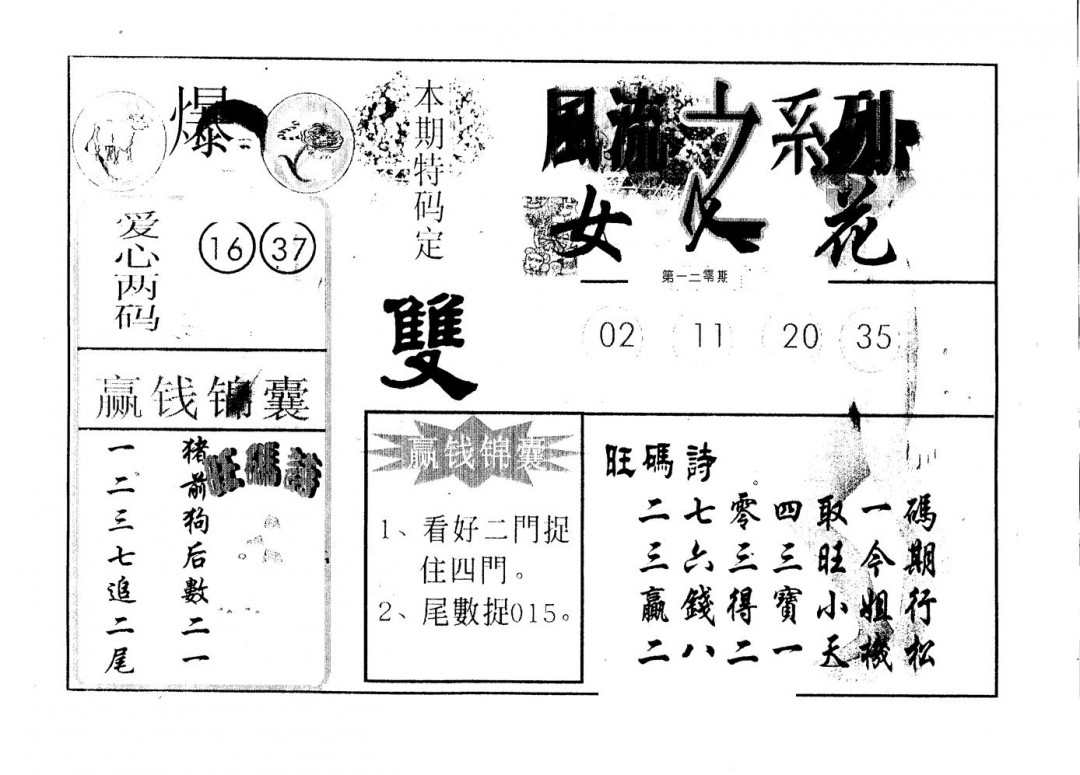 爆
爱心两码
16 37
赢钱锦囊
旺碼詩
猪前狗后數二一
一二三七追二尾
本期特码定
雙
赢钱锦囊
1、看好二門捉
住四門。
2、尾數捉015。
風流之系列
女人花
第一二零期
02 11 20 35
旺碼詩
二七零四取一碼
三六三三旺今期
贏錢得寶小姐行
二八二一天機松